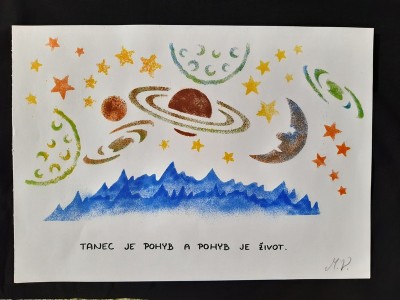 TANEC JE POHYB A POHYB JE ŽIVOT.
M.V.